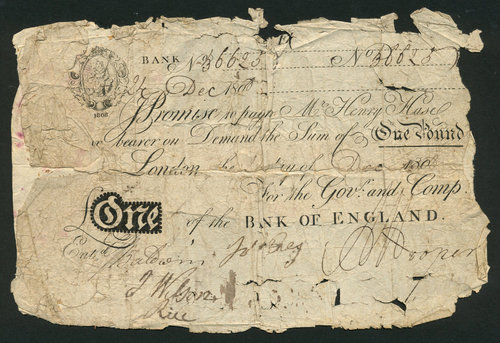 BANK No 36623 No 36623
Dec 1808
1808
I Promise to pay to Mr. Henry Hase
or bearer on Demand the Sum of One Pound
London the of Dec 1808
For the Govr. and Compa.
£ One of the BANK OF ENGLAND.
Entd. Baldwin
J Wilson
Rice